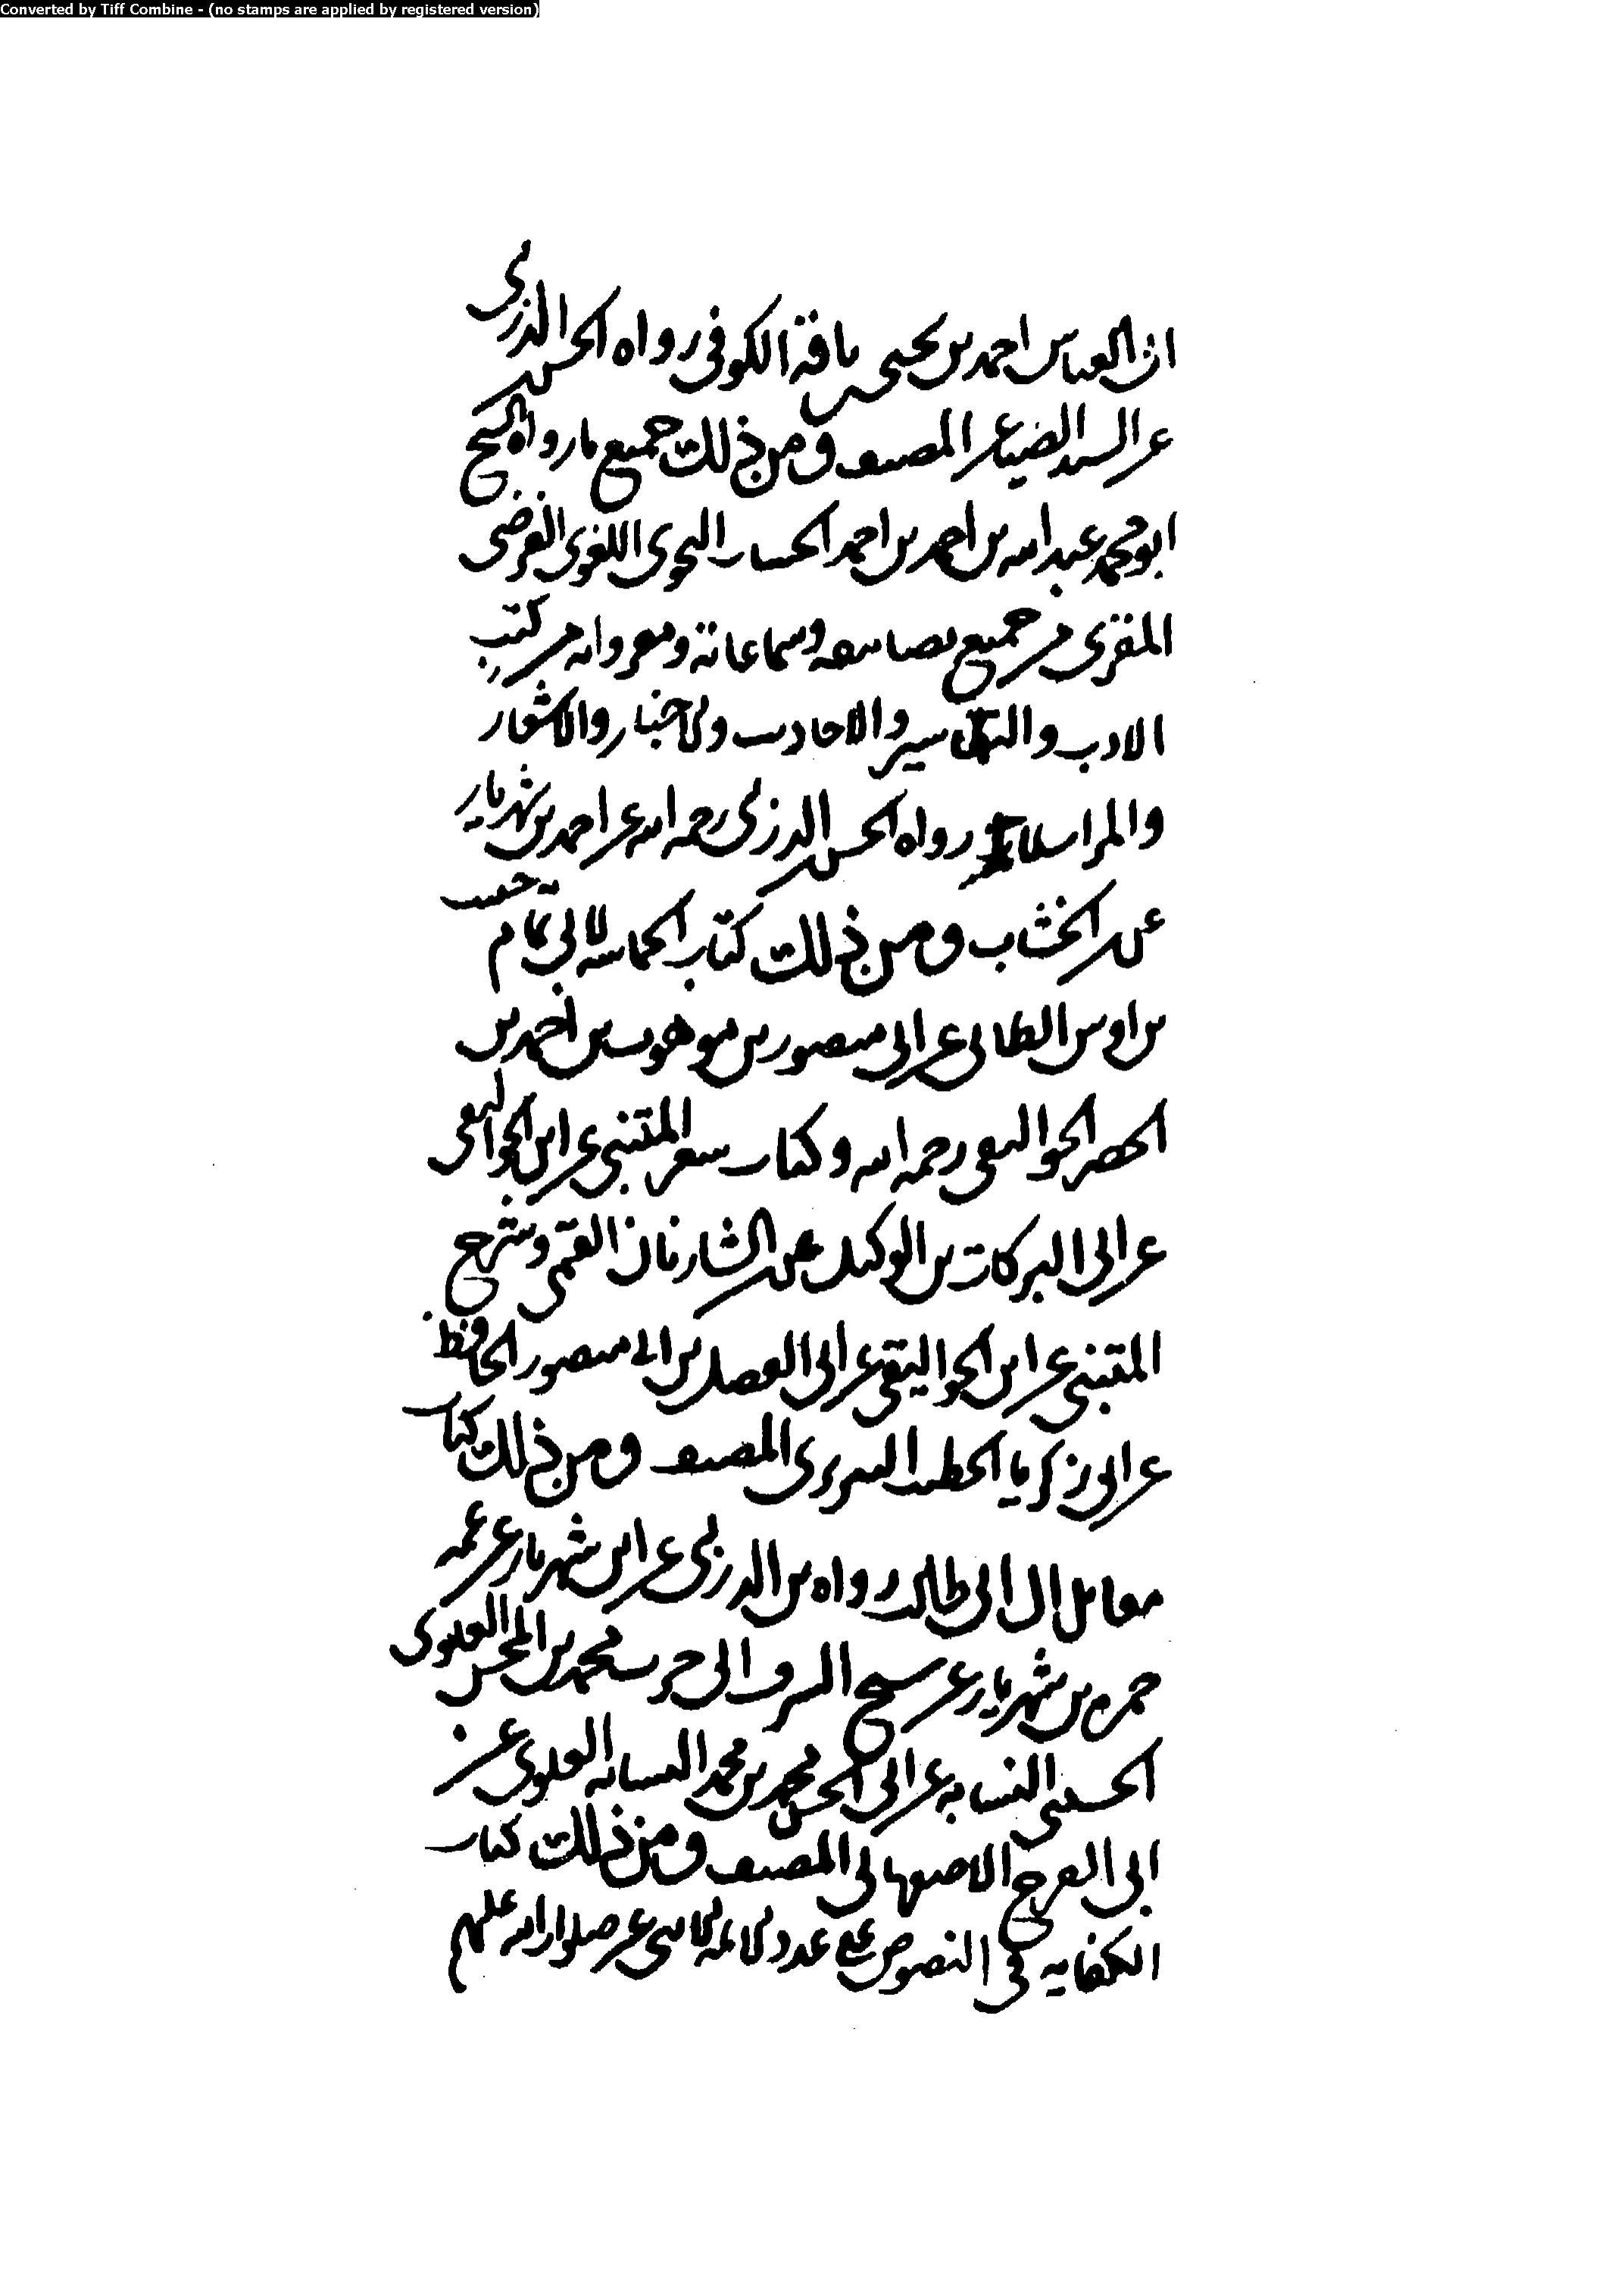 Converted by Tiff Combine - (no stamps are applied by registered version)
ابى العباس احمد بن يحيى بن ناقة الكوفى رواه الحسن الدربى
عن السيد الضيا عن المصنف ومن ذلك جميع ما رواه الشيخ
ابو محمد عبد الله بن احمد بن احمد الخشاب النحوى اللغوى الفرضى
المقرى من جميع تصانيفه وسماعاته ومقرواته من كتب
الادب والتفاسير والاحاديث والاخبار والاشعار
والمراسلات رواه الحسن الدربى رحمه الله عن احمد بن شهريار
عن الخشاب ومن ذلك كتاب الحماسه لابى تمام حبيب
بن اوس الطائى عن ابى منصور بن موهوب بن احمد بن
الخضر الجواليقى رحمه الله وكتاب شعر المتنبى عن ابن الجواليقى
عن ابى البركات بن الوكيل عن الشاربان القمى وشرح
المتنبى عن ابن الجواليقى عن ابى الفضل بن ابى منصور الحافظ
عن ابى زكريا الخطيب التبريزى المصنف ومن ذلك كتاب
مقاتل ال ابى طالب رواه بن الدربى عن ابن شهريار عن عمه
حمزه بن شهريار عن الشرف محمد بن المحسن العلوى
الحسينى النسابه عن ابى الحسن محمد بن محمد النسابه العلوى عن
ابى الفرج الاصبهانى المصنف ومن ذلك كتاب
الكفايه فى النصوص على عدد الائمه الاثنى عشر صلوات الله عليهم